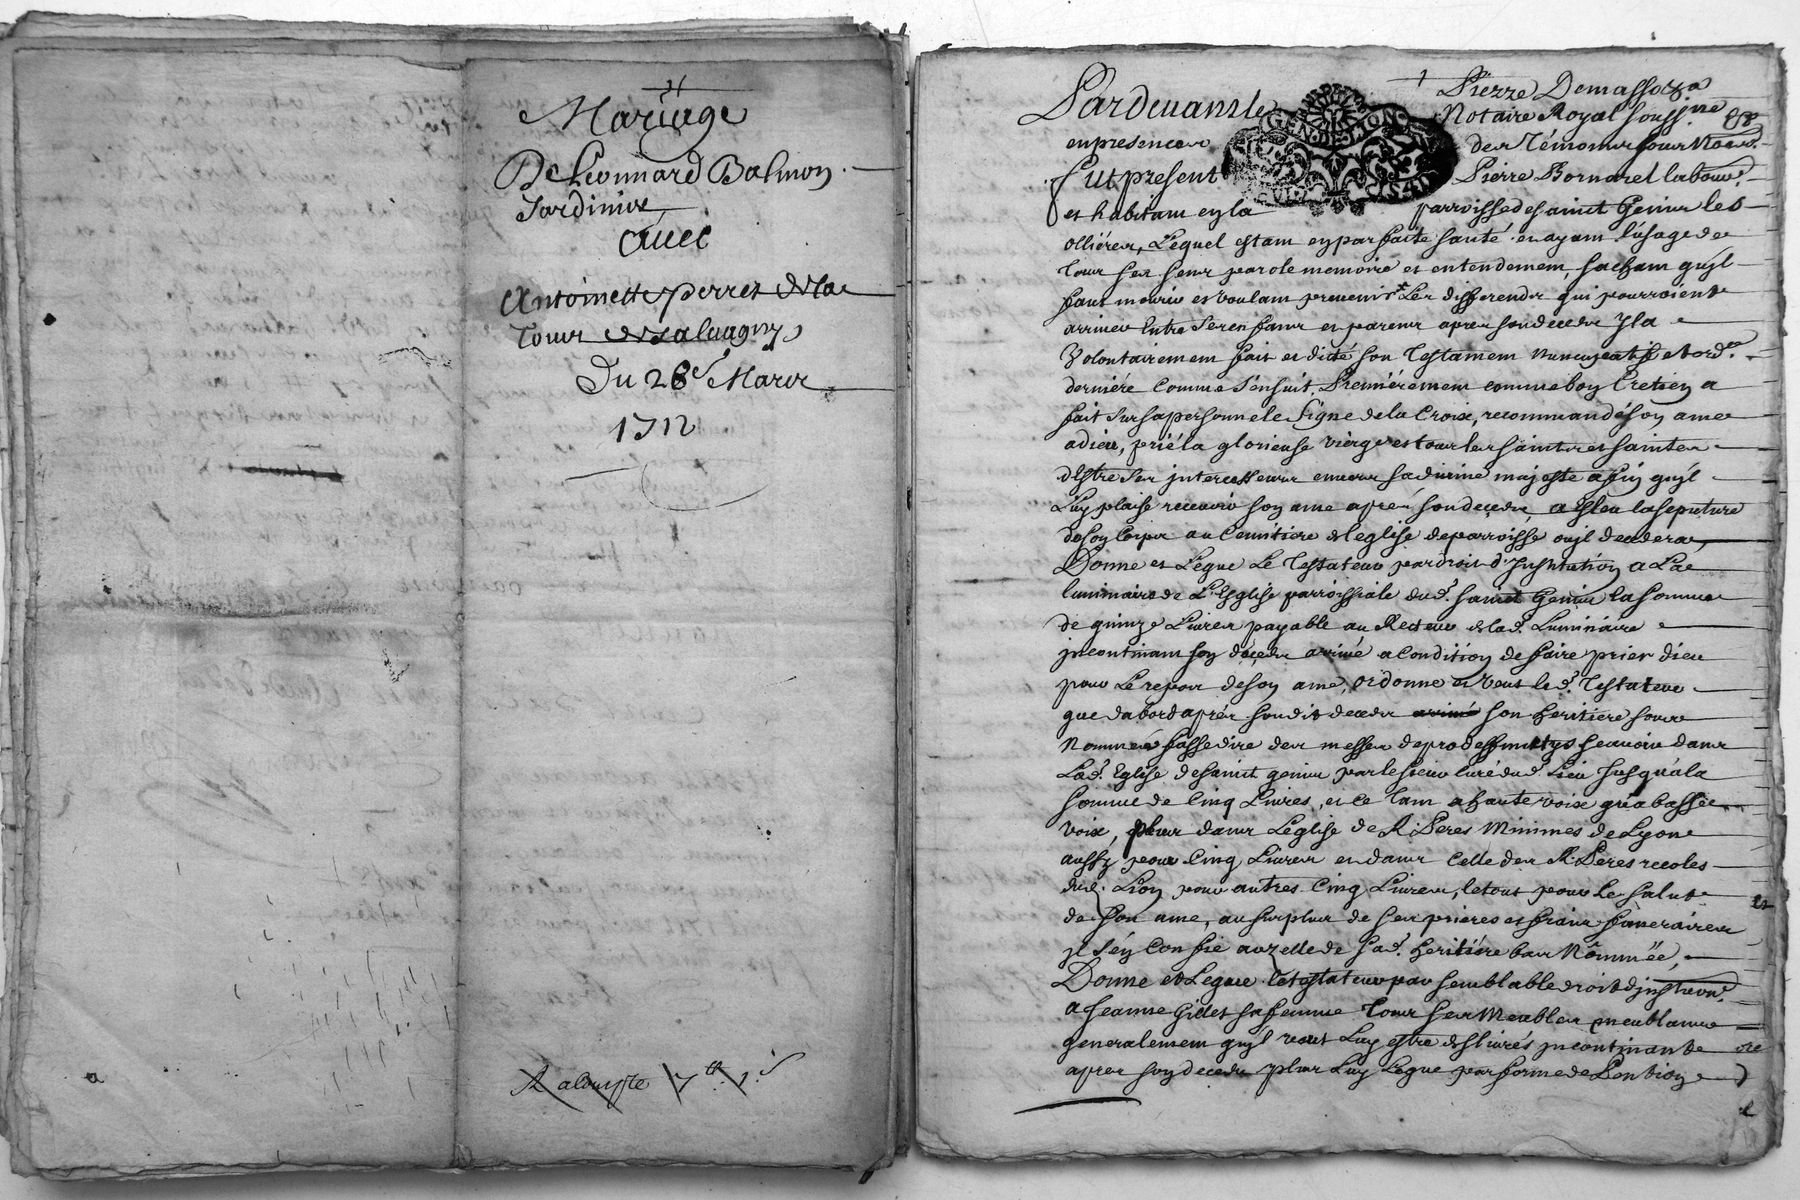 Mariage
De Léonnard Balmon
Jardinier
avec
Antoinette perret de la
Tour de salvagny
Du 28e Mars
1712
Pardevant le Pierre Demassoza
Notaire Royal soussne
en presence des Témoins sous Nom.
fut present Pierre Bornarel labour.
et habitant en la parroisse de saint Genius les
olliéres, Lequel estant en parfaite santé et ayant l'usage de
tous ses sens parole memoire et entendement, sachant qu'jl
faut mourir et voulant prevenir les differends qui pourroient
arriver Entre ses enfans et parens apres son deceds Jl a
Volontairement fait et dicté son Testament nuncupatif et ord.re
derniére comme s'ensuit, Premiérement comme bon Cretien a
fait sur sa personne le signe de la Croix, recommandé son ame
a dieu, prié la glorieuse viérge et tous les saints et saintes
d'Estre ses jntercesseurs envers sa divine majesté afin qu'jl
Luy plaise recevoir son ame aprés son deceds a Esleu la sepulture
de son Corps au Cemitiere de l'eglise de parroisse ou jl decedera,
Donne et Legue Le Testateur par droit d'Jnstitution a La
luminaire de L'Esglise parroissiale dud. saint Genius la somme
de quinze Livres payable au Recteur de lad. Luminaire
jncontinant son décéds arrivé a Condition de faire prier dieu
pour Le repos de son ame, ordonne et veut led. Testateur
que d'abord aprés son dit deceds son heritiere sous
Nommée fasse dire des messes de pro deffunctys scavoir dans
Lad. Eglise de saint genius par le sieur curé dud. Lieu Jusqu'a la
somme de Cinq Livres, et ce tant a haute voix que a basse
voix, plus dans Leglise de R. Peres Minimes de Lyon
aussy pour Cinq Livres et dans Celle des R. Peres recoles
dud. Lion pour autres Cinq Livres, le tout pour le salut
de son ame, au surplus de ses prieres et frais funeraires
jl s'en Confie au zelle de sad. heritiére bas Nommée,
Donne et Legue le testateur par semblable droit d'jnst.on
a Jeanne Gillet sa femme Tous ses Meubles meublans
generalement qu'jl veut Luy estre deslivrés jncontinant
apres son deceds plus Luy Legue par forme de Pention